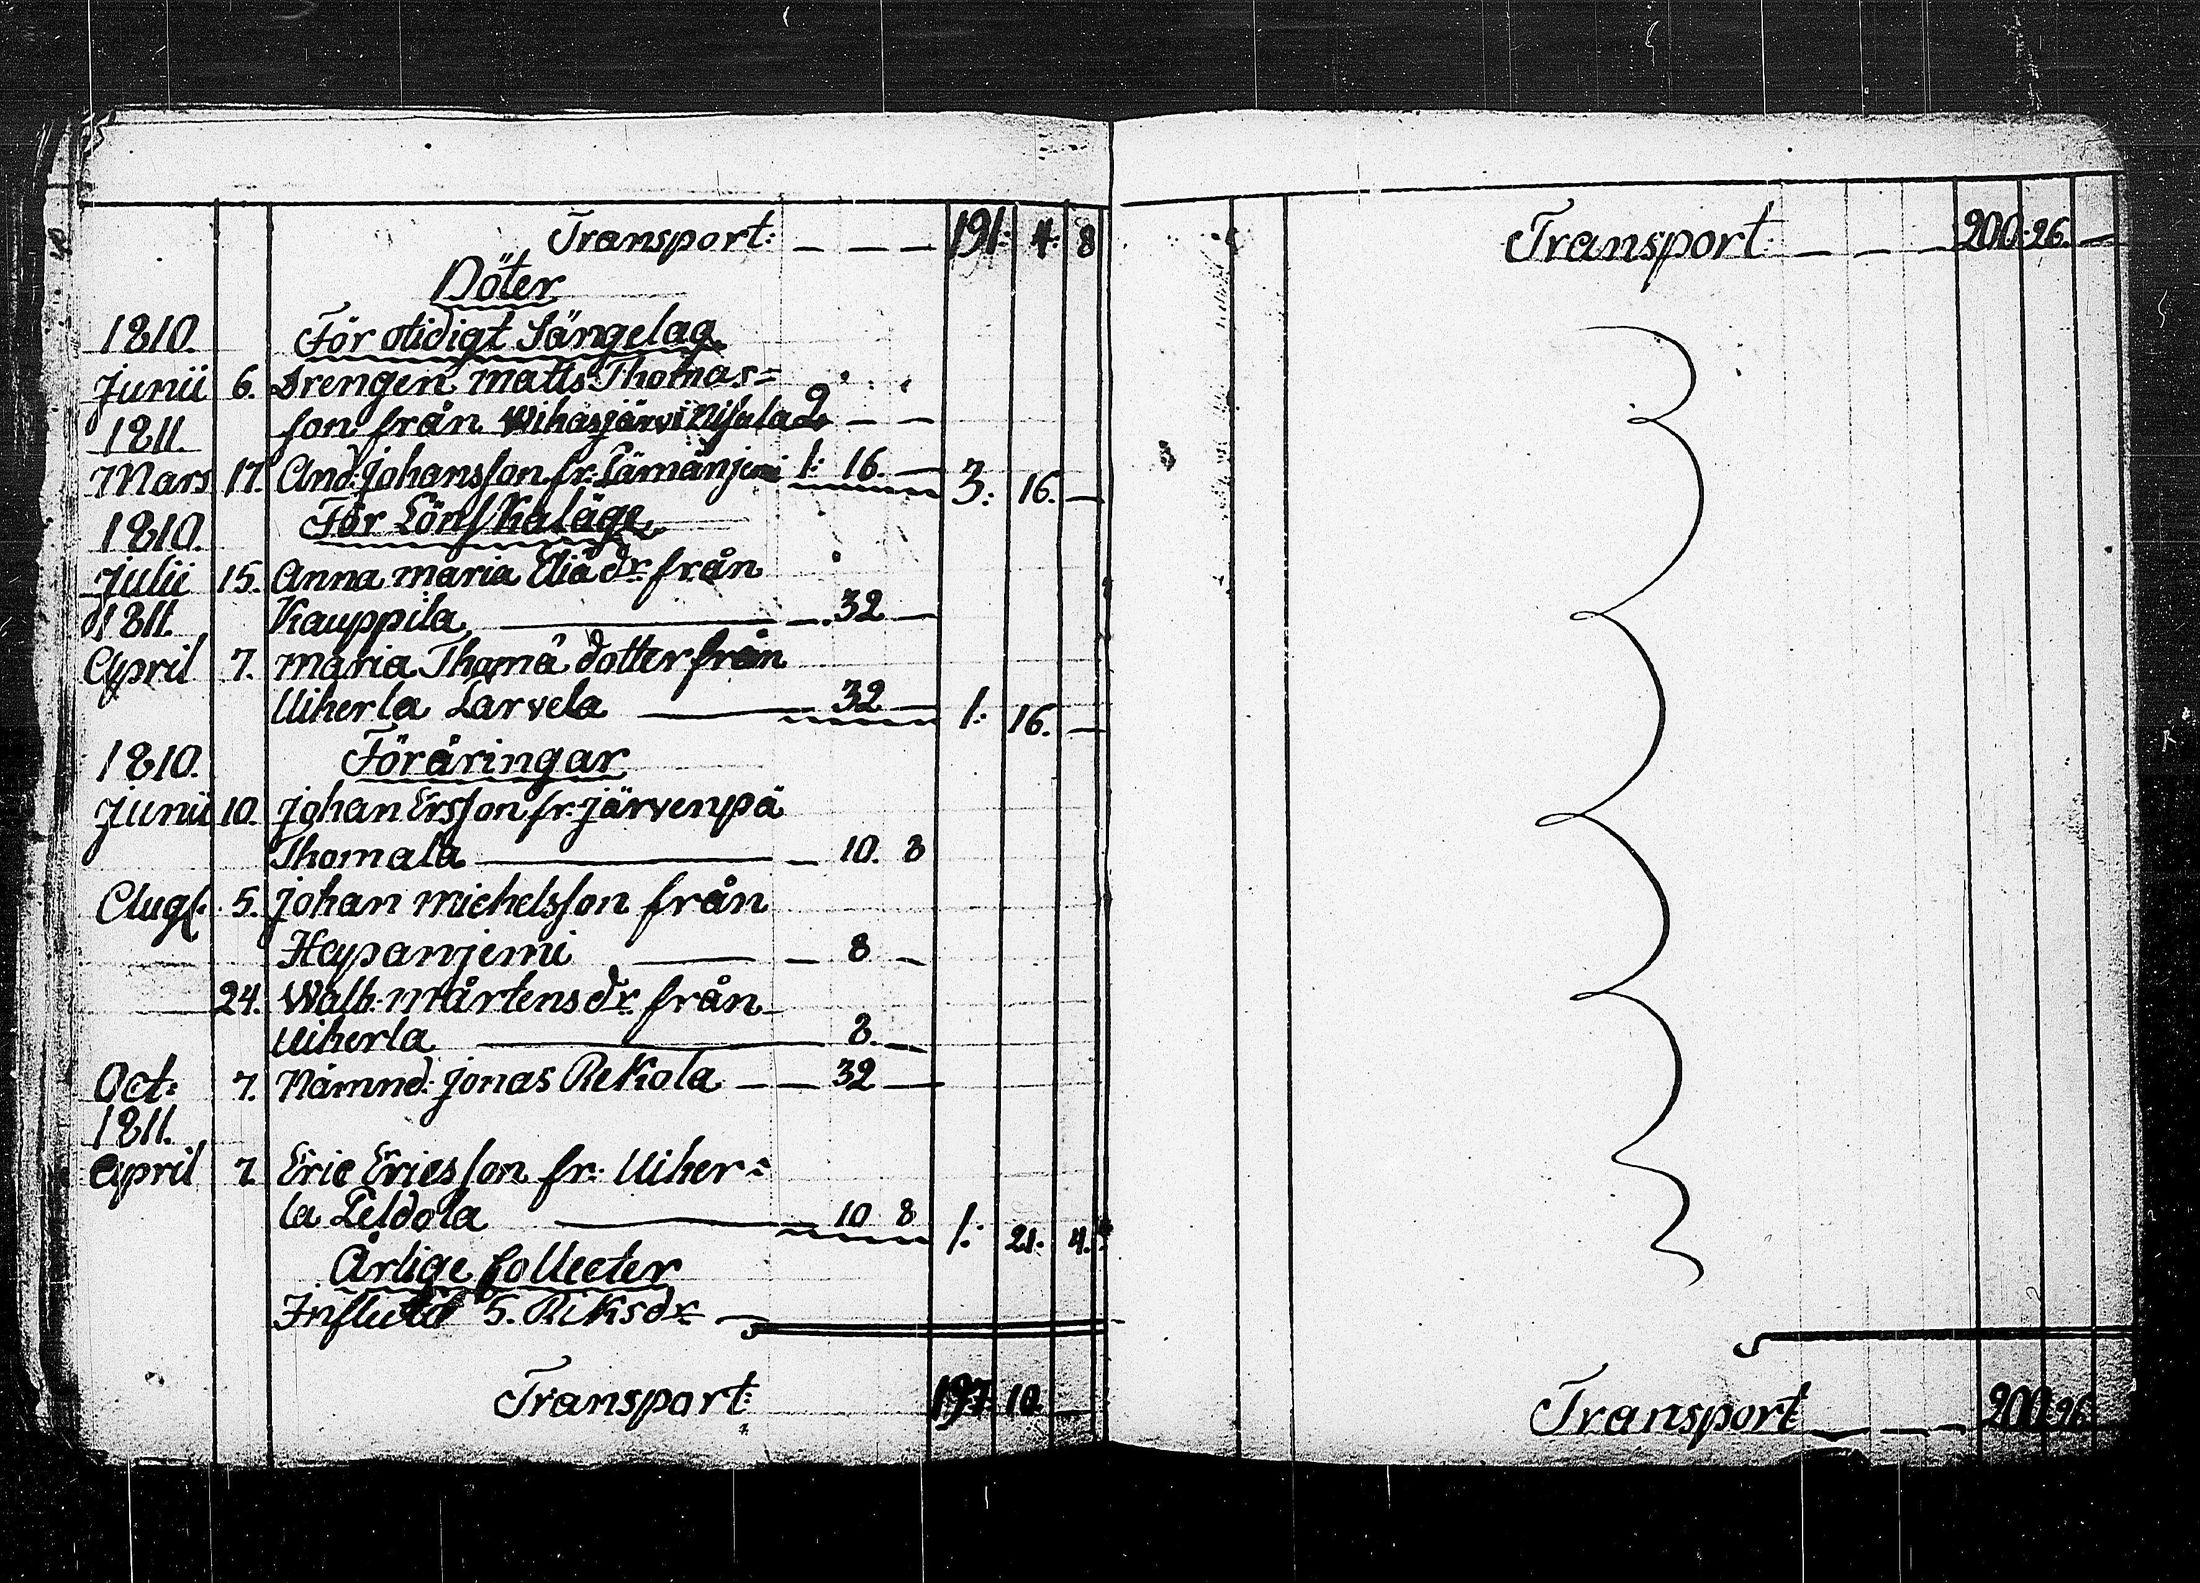 Transport: — — — 191: 4: 8
Böter
1810. För otidigt Sängelag
Junii 6. Drengen Matts Thomas=
1811. son från Wihasjärvi Nisula 2 — —
Mars 17. And: Johansson fr: 1: 16. — 3: 16. —
1810. För Lönskaläge
Julii 15. Anna Maria Eliæ dr. från
1811. Kauppila — 32 —
April 7. Maria Thomæ dotter från
Uiherla Larvela — 32 — 1: 16. —
1810. Föräringar
Junii 10. Johan Ersson fr: Järvenpä
Thomala — 10. 8
Aug. 5. Johan Michelsson från
— 8 —
24. Walb: Mårtens dr. från
Uiherla — 8. —
Oct: 7. Nämnd: Jonas Rekola — 32 —
1811.
April 7. Eric Ericsson fr: Uiher=
la Peldola — 10 8 1: 21. 4.
Årlige Collecter
5. Riksdr —
Transport: 197. 10. —
Transport: — — — 200. 26. —
Transport — — — 200 26